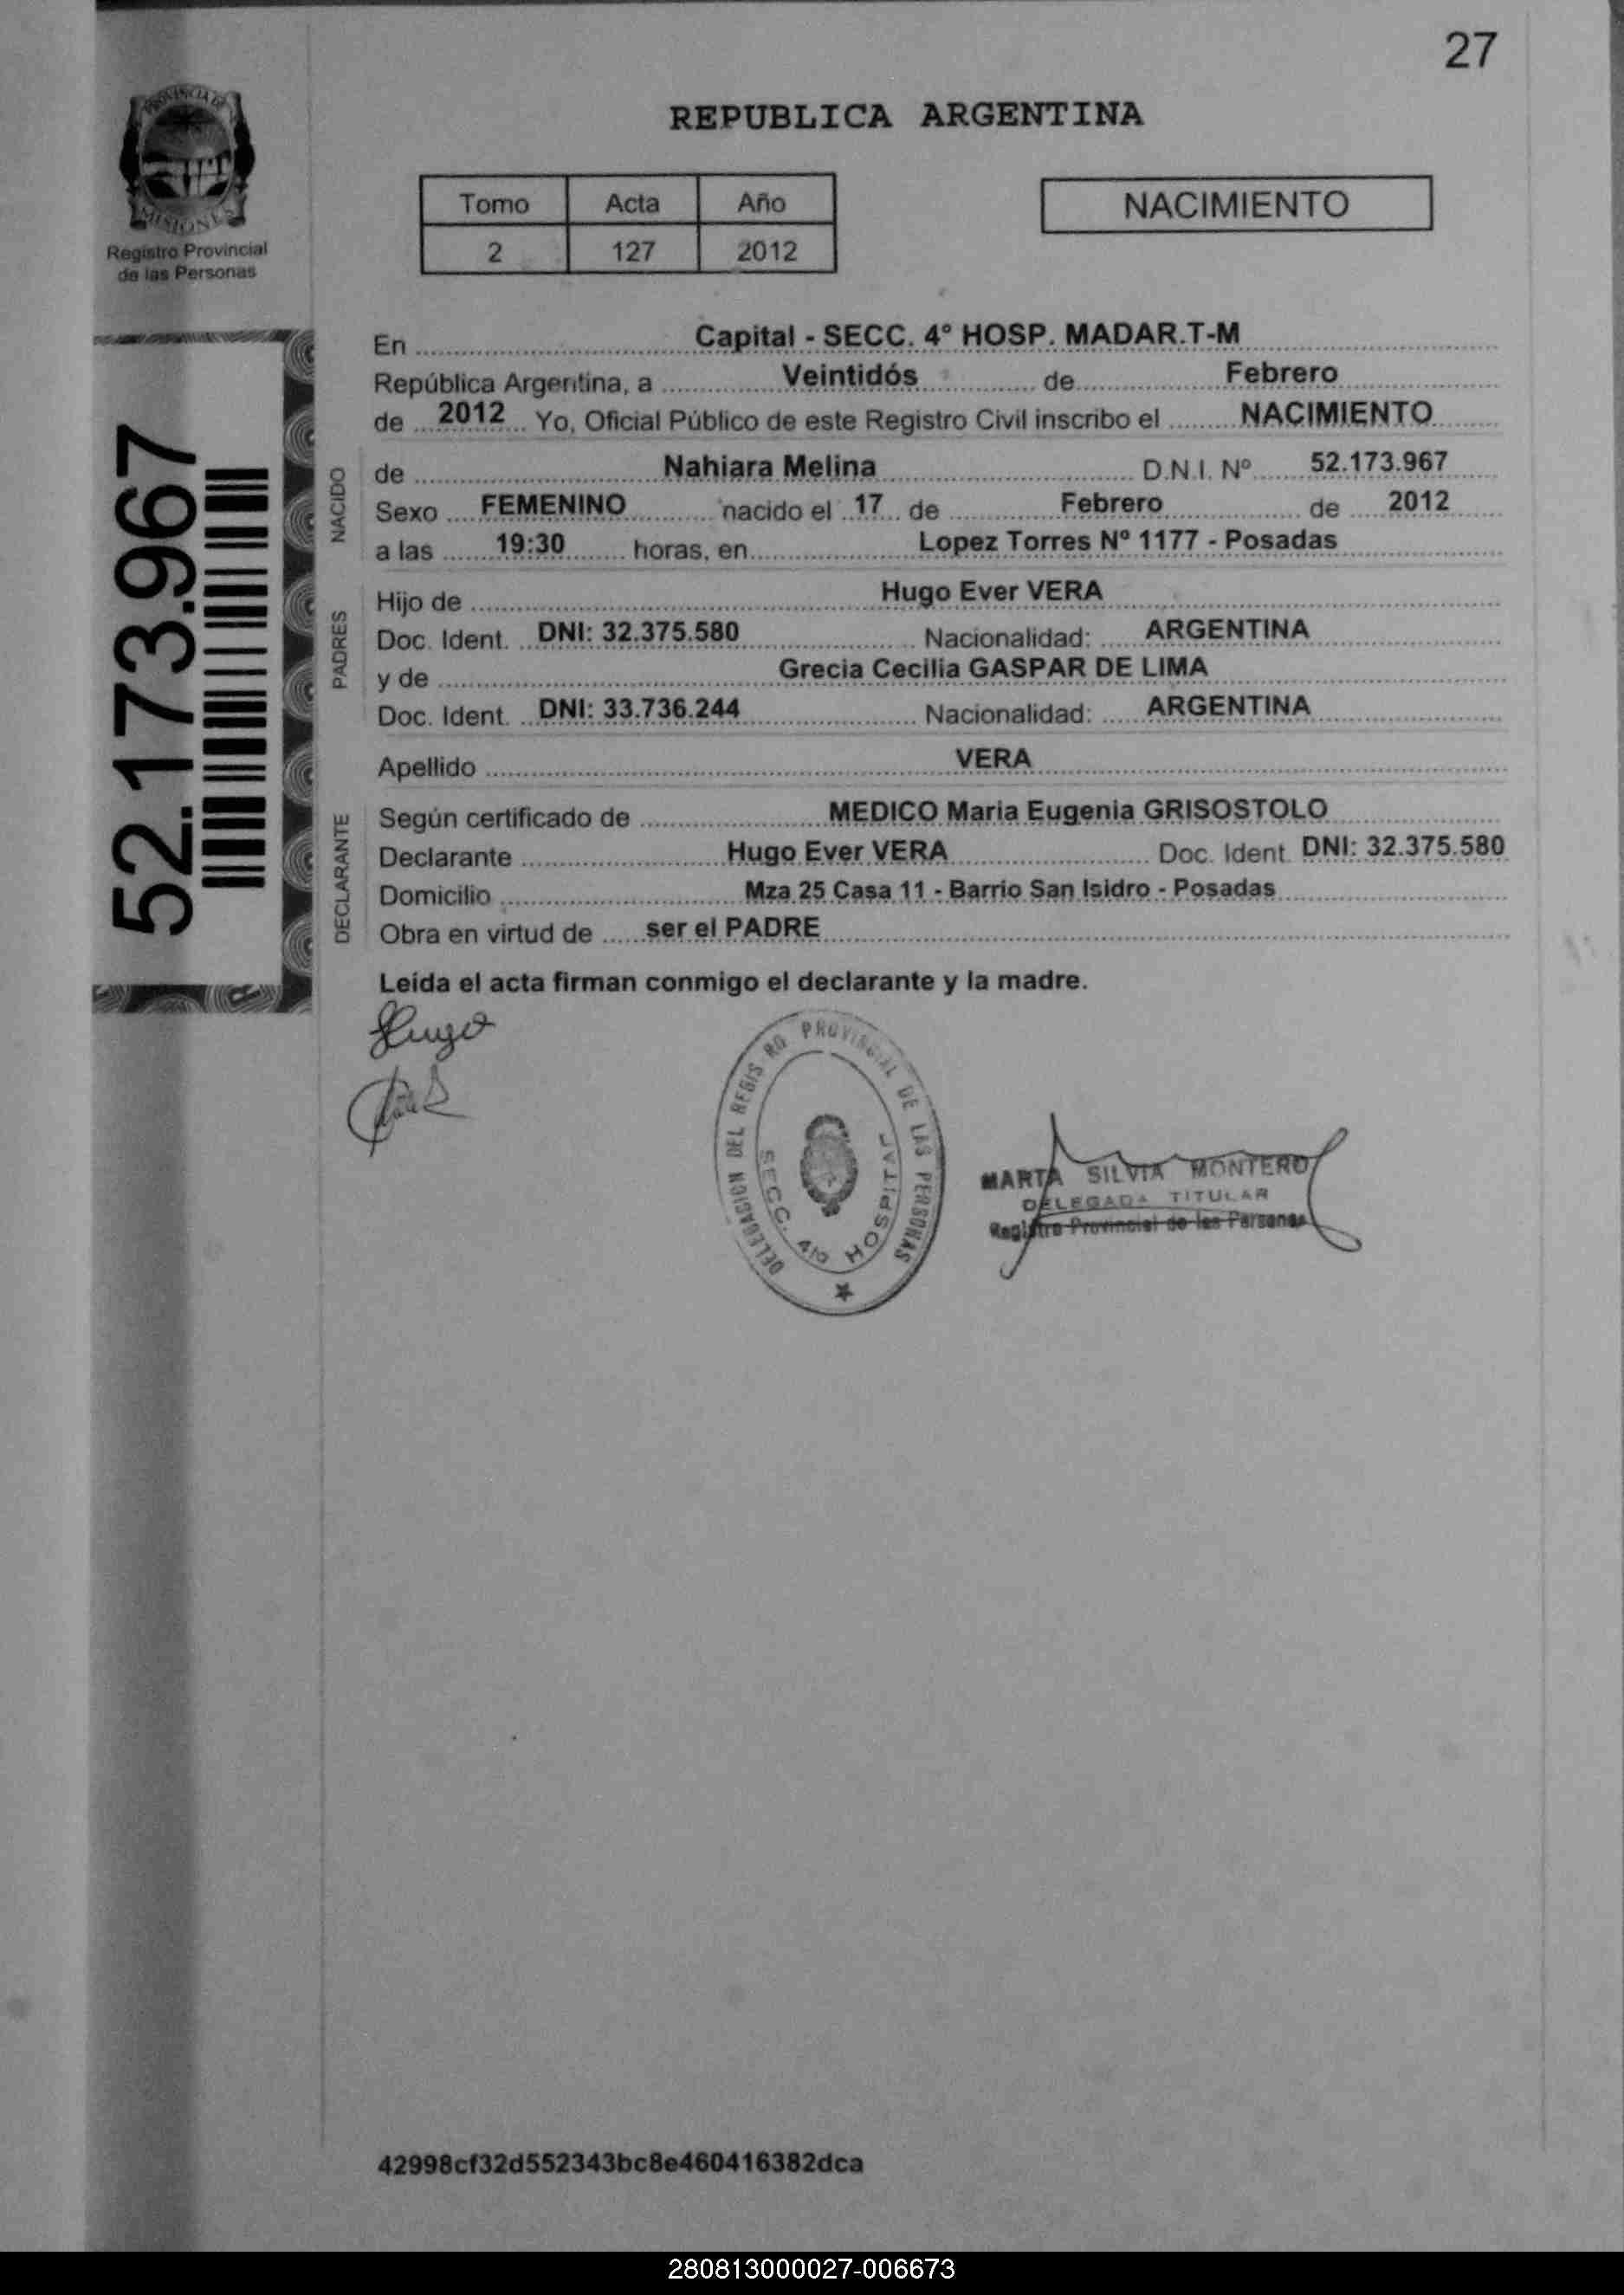 27
PROVINCIA DE
MISIONES
Registro Provincial
de las Personas
REPUBLICA ARGENTINA
Tomo Acta Año
2 127 2012
NACIMIENTO
52.173.967
En Capital - SECC. 4° HOSP. MADAR.T-M
República Argentina, a Veintidós de Febrero
de 2012 Yo, Oficial Público de este Registro Civil inscribo el NACIMIENTO
NACIDO
de Nahiara Melina D.N.I. Nº 52.173.967
Sexo FEMENINO nacido el 17 de Febrero de 2012
a las 19:30 horas, en Lopez Torres Nº 1177 - Posadas
PADRES
Hijo de Hugo Ever VERA
Doc. Ident. DNI: 32.375.580 Nacionalidad: ARGENTINA
y de Grecia Cecilia GASPAR DE LIMA
Doc. Ident. DNI: 33.736.244 Nacionalidad: ARGENTINA
Apellido VERA
DECLARANTE
Según certificado de MEDICO Maria Eugenia GRISOSTOLO
Declarante Hugo Ever VERA Doc. Ident. DNI: 32.375.580
Domicilio Mza 25 Casa 11 - Barrio San Isidro - Posadas
Obra en virtud de ser el PADRE
Leida el acta firman conmigo el declarante y la madre.
Hugo
DELEGACION DEL REGIS RO PROVINCIAL DE LAS PERSONAS
SECC. 4ta HOSPITAL
MARTA SILVIA MONTERO
DELEGADA TITULAR
Registro Provincial de las Personas
42998cf32d552343bc8e460416382dca
280813000027-006673